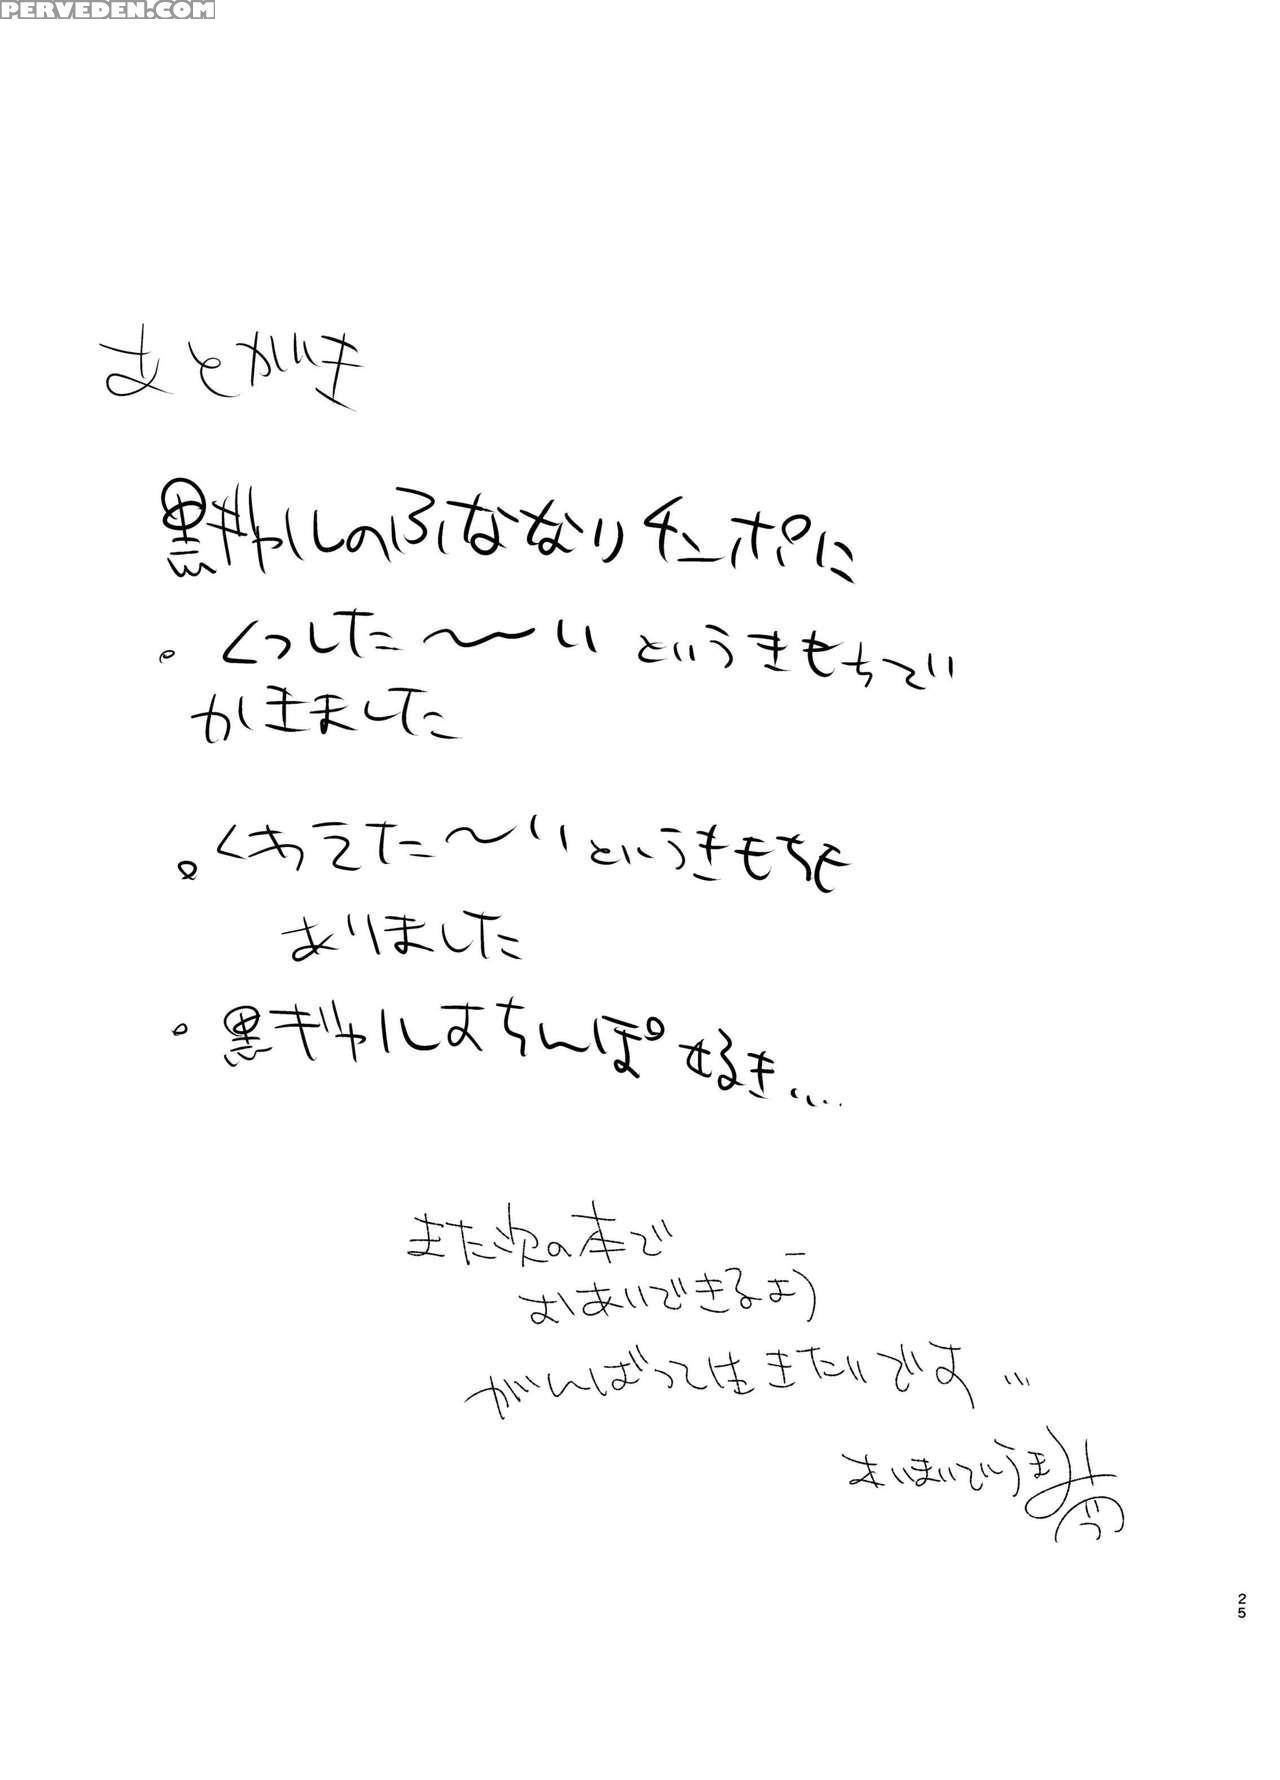 PERVEDEN.COM
あとがき
黒ギャルのふななりチンポに
・くっした〜〜いというきもちで
かきました
・くわえた〜いというきもちも
ありました
・黒ギャルおちんぽ好き....
また次の本で
おあいできるよう
がんばって生きたいです...
25